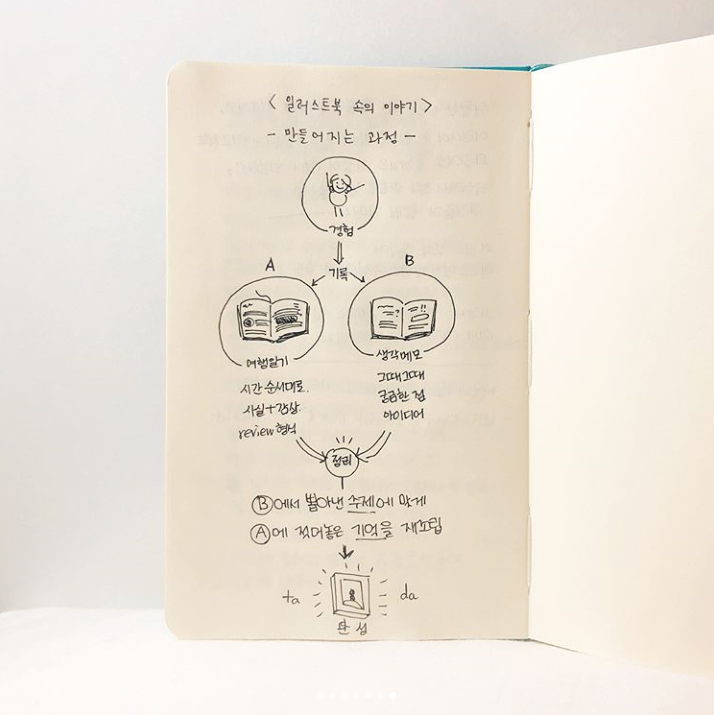 < 일러스트북 속의 이야기 >
- 만들어지는 과정 -
경험
기록
A
B
여행일기
시간 순서대로.
사실+감상.
review 형식
생각메모
그때그때
궁금한 점
아이디어
정리
Ⓑ에서 뽑아낸 주제에 맞게
Ⓐ에 적어놓은 기억을 재조립
ta
da
완성